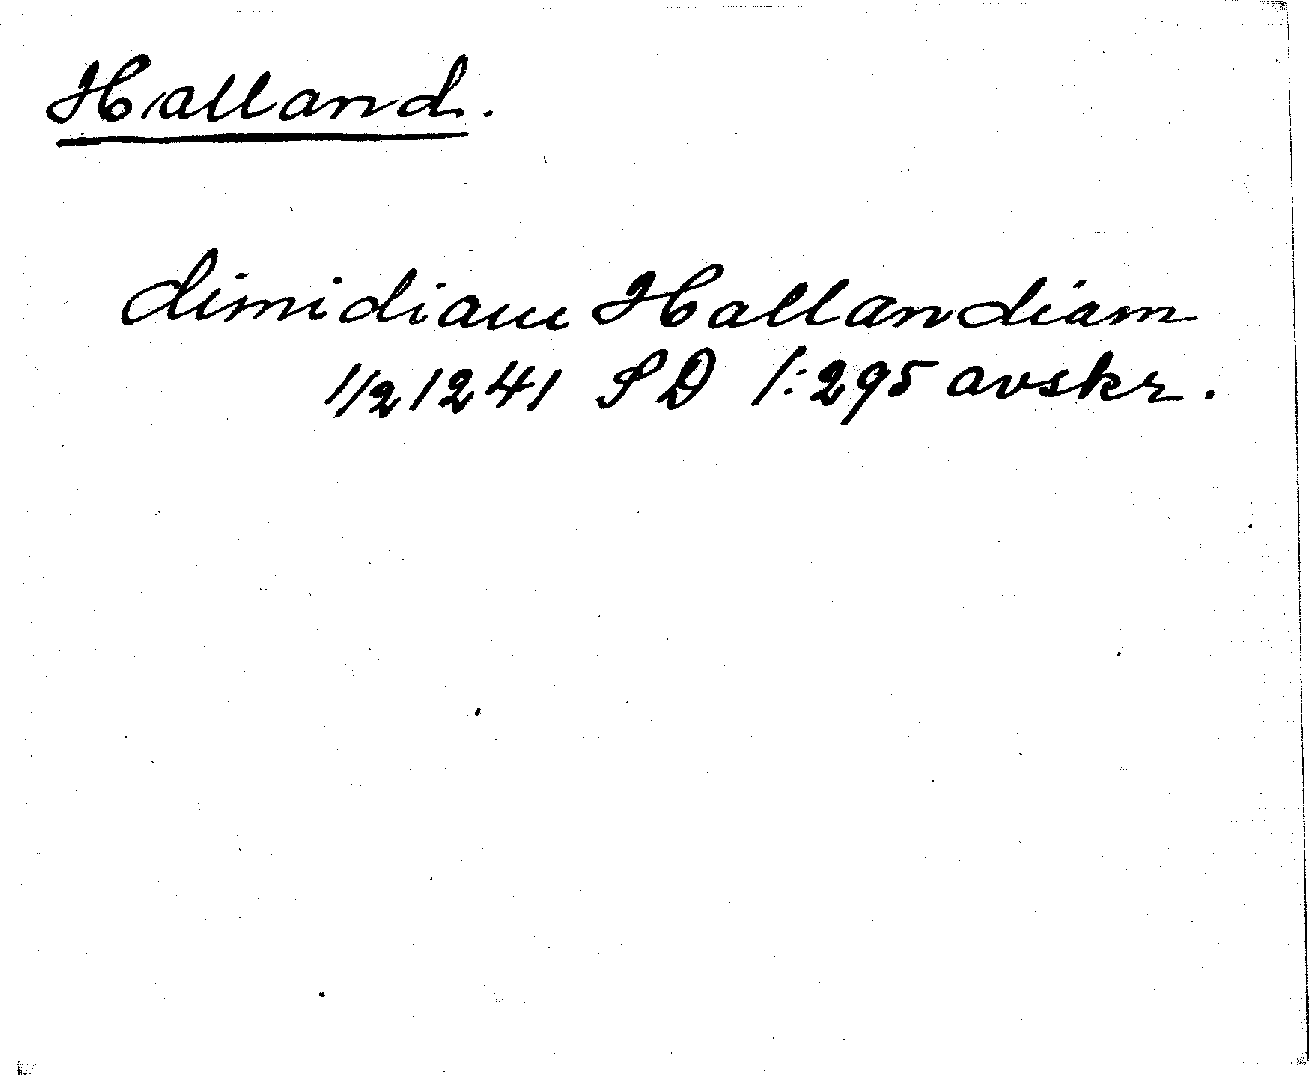 Halland.
dimidiam Hallandiam
1/2 1241 SD 1:295 avskr.